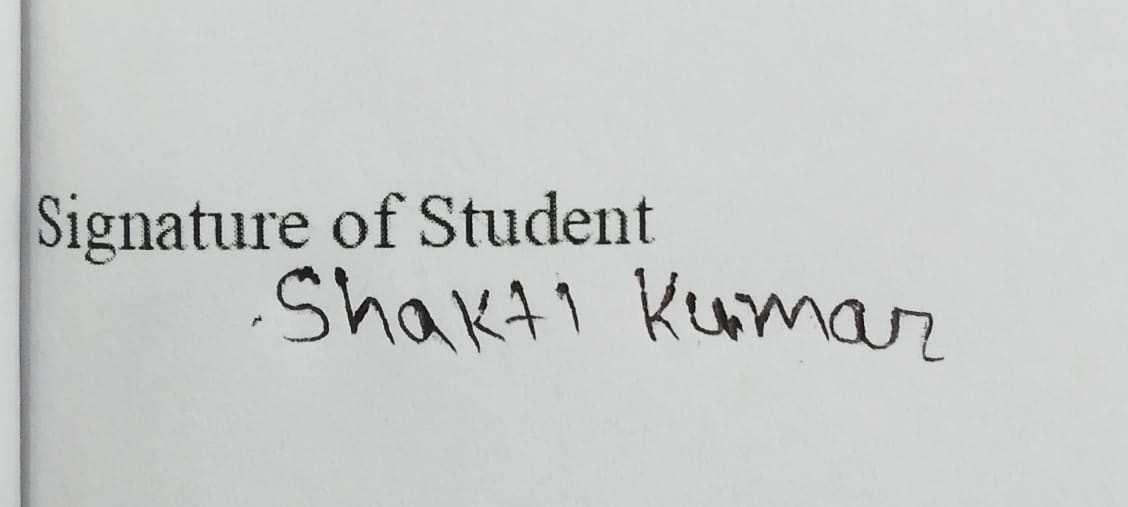 Signature of Student
Shakti Kumar